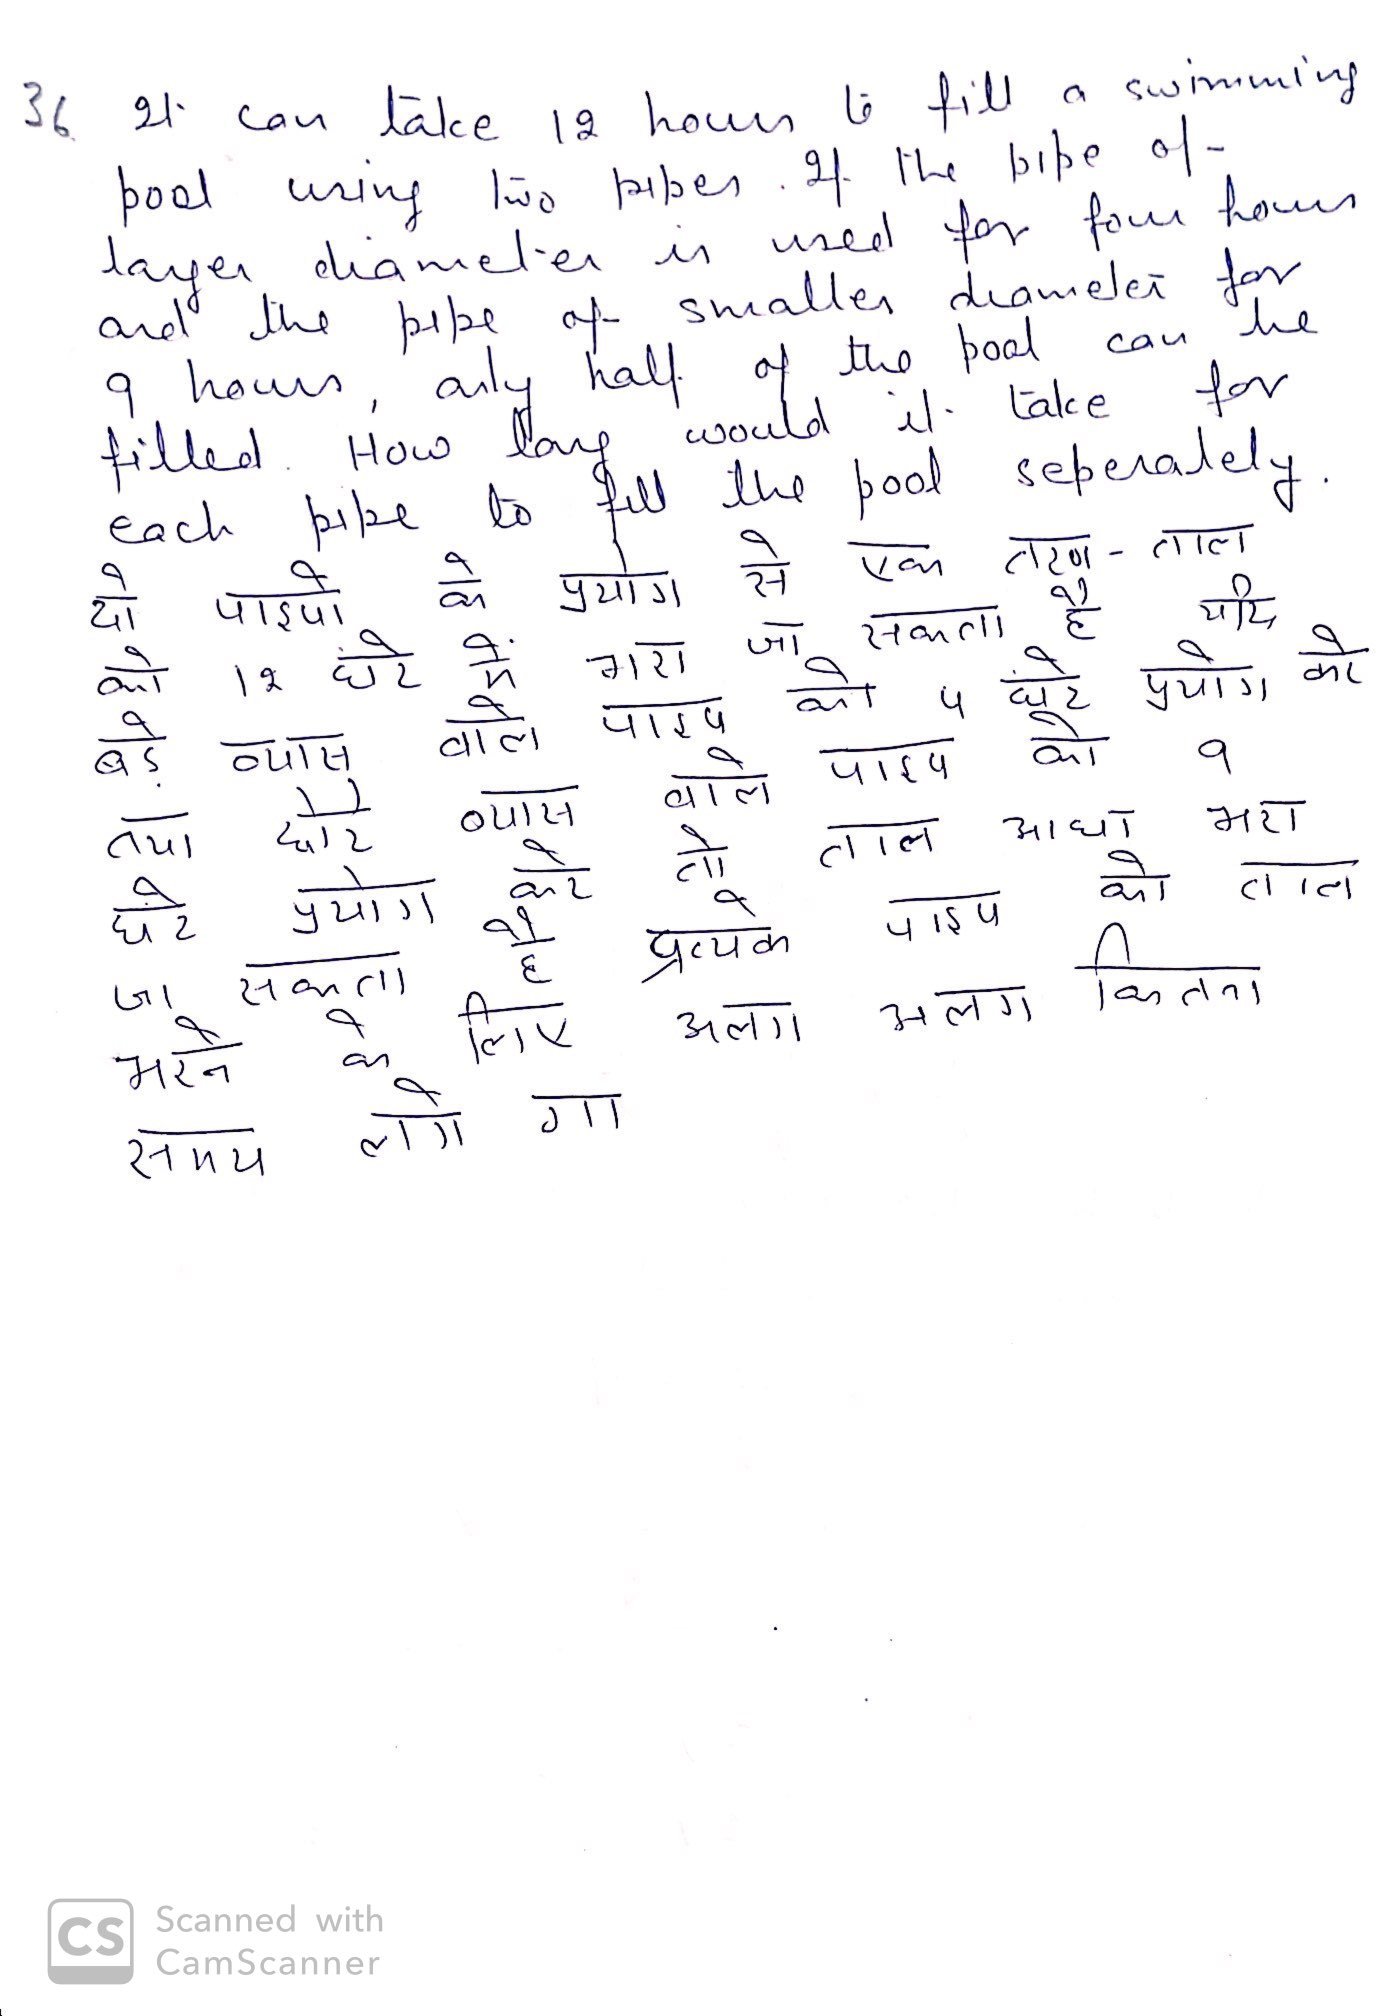 36. It can take 12 hours to fill a swimming
pool using two pipes. If the pipe of
larger diameter is used for four hours
and the pipe of smaller diameter for
9 hours, only half of the pool can be
filled. How long would it take for
each pipe to fill the pool seperately.
दो पाइपो के प्रयोग से एक तरण-ताल
को 12 घंटे में भरा जा सकता है यदि
बड़े व्यास वाले पाइप को 4 घंटे प्रयोग करे
तथा छोटे व्यास वाले पाइप को 9
घंटे प्रयोग करे तो ताल आधा भरा
जा सकता है प्रत्येक पाइप को ताल
भरने के लिए अलग अलग कितना
समय लगे गा
CS Scanned with
CamScanner